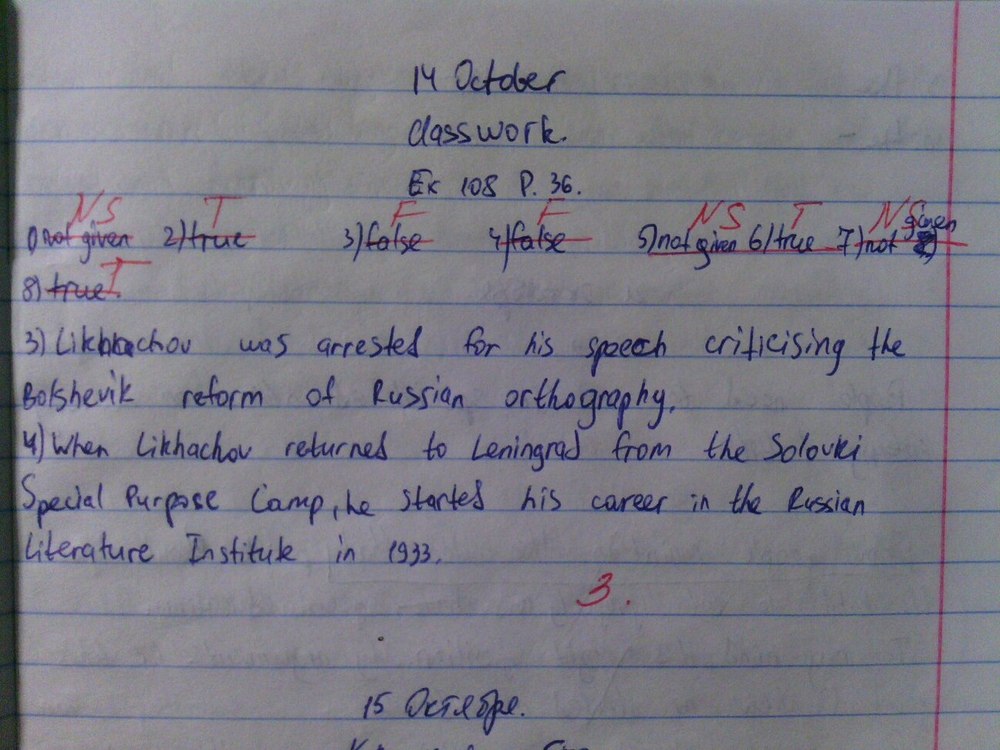 14 October
Classwork.
Ex 108 P. 36.
NS T F F NS T NS
1) not given 2) true 3) false 4) false 5) not given 6) true 7) not given
8) true. T
3) Likhachov was arrested for his speech criticising the
Bolshevik reform of Russian orthography.
4) When Likhachov returned to Leningrad from the Solovki
Special Purpose Camp, he started his career in the Russian
Literature Institute in 1933.
3.
15 Октября.